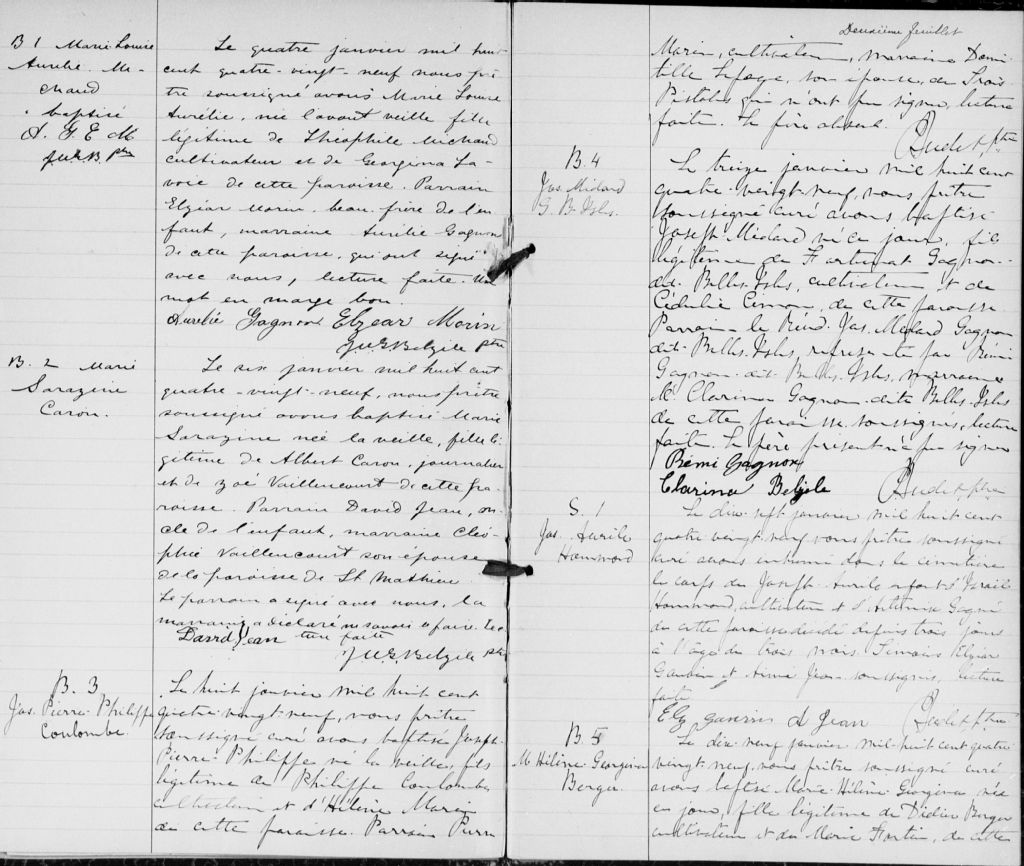 B 1 Marie Louise
Aurelie Mi-
chaud
baptisé
A. G. E. M.
ptre
Le quatre janvier mil huit
cent quatre-vingt-neuf nous prê
tre soussigné avons Marie Louise
Aurélie, née l'avant veille fille
légitime de Théophile Michaud
cultivateur et de Georgina La-
voie de cette paroisse. Parrain
Elzéar Morin, beau-frère de l'en
fant, marraine Aurélie Gagnon
de cette paroisse, qui ont signé
avec nous, lecture faite. Un
mot en marge bon.
Aurélie Gagnon Elzear Morin
Belzile ptre
B. 2 Marie
Sarazine
Caron.
Le six janvier mil huit cent
quatre-vingt-neuf, nous prêtre
soussigné avons baptisé Marie
Sarazine née la veille, fille lé
gitime de Albert Caron, journalier
et de Zoé Vaillencourt de cette pa
roisse. Parrain David Jean, on-
cle de l'enfant, marraine Cléo-
phée Vaillencourt son épouse
de la paroisse de St Mathieu.
Le parrain a signé avec nous, la
marraine a déclaré ne savoir le faire. Lec
David Jean ture faite
Belzile ptre
B. 3
Jos. Pierre Philippe
Coulombe
Le huit janvier mil huit cent
quatre-vingt-neuf, nous prêtre
soussigné curé avons baptisé Joseph
Pierre Philippe né la veille, fils
légitime de Philippe Coulombe
cultivateur et d'Hélène Morin
de cette paroisse. Parrain Pierre
Deuxième feuillet
Morin, cultivateur, marraine Domi
tille Lepage, son épouse, de Trois
Pistoles qui n'ont pu signer, lecture
faite. Le père absent.
Audet, ptre
B. 4
Jos. Médard
G. B. Isles.
Le treize janvier mil huit cent
quatre-vingt-neuf, nous prêtre
soussigné curé avons baptisé
Joseph Médard né ce jour, fils
légitime de Fortunat Gagnon-
dit-Belles-Isles, cultivateur et de
Cédulie Cimon, de cette paroisse
Parrain le Révd. Jos. Médard Gagnon
dit-Belles-Isles, représenté par Rémi
Gagnon-dit-Belles-Isles, marraine
M. Clarina Gagnon-dite Belles-Isles
de cette paroisse soussignés, lecture
faite. Le père présent n'a pu signer
Rémi Gagnon
Clarina Belzile
Audet, ptre
S. 1
Jos. Aurèle
Hammond
Le dix-sept janvier mil huit cent
quatre-vingt-neuf nous prêtre soussigné
curé avons inhumé dans le cimetière
le corps de Joseph Aurèle enfant d'Israël
Hammond, cultivateur et d'Artémise Gagné
de cette paroisse décédé depuis trois jours
à l'âge de trois mois. Témoins Elzéar
et Aimé Jean soussignés, lecture
faite
Elz A Jean Audet, ptre
B 5
M. Hélène Georgina
Berger
Le dix-neuf janvier mil huit cent quatre
vingt-neuf, nous prêtre soussigné curé
avons baptisé Marie Hélène Georgina née
ce jour, fille légitime de Didier Berger
cultivateur et de Marie Fortin, de cette